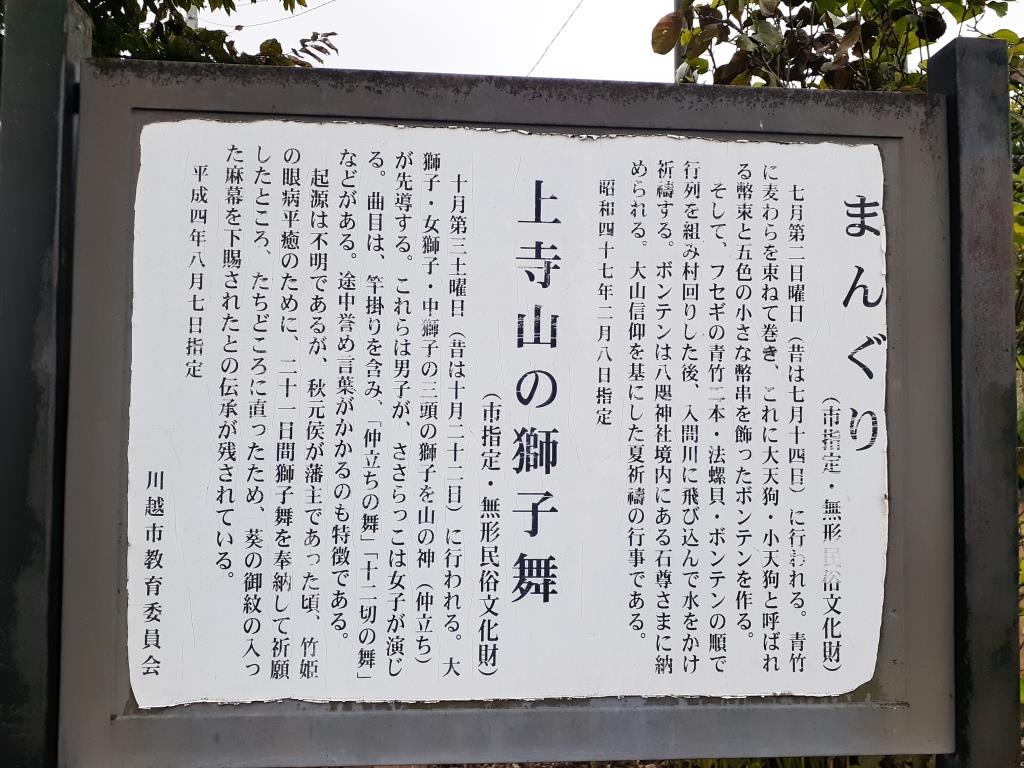 まんぐり
（市指定・無形民俗文化財）
七月第二日曜日（昔は七月十四日）に行われる。青竹
に麦わらを束ねて巻き、これに大天狗・小天狗と呼ばれ
る幣束と五色の小さな幣串を飾ったボンテンを作る。
そして、フセギの青竹二本・法螺貝・ボンテンの順で
行列を組み村回りした後、入間川に飛び込んで水をかけ
祈禱する。ボンテンは八咫神社境内にある石尊さまに納
められる。大山信仰を基にした夏祈禱の行事である。
昭和四十七年二月八日指定
上寺山の獅子舞
（市指定・無形民俗文化財）
十月第三土曜日（昔は十月二十二日）に行われる。大
獅子・女獅子・中獅子の三頭の獅子を山の神（仲立ち）
が先導する。これらは男子が、ささらっこは女子が演じ
る。曲目は、竿掛りを含み、「仲立ちの舞」「十二切の舞」
などがある。途中誉め言葉がかかるのも特徴である。
起源は不明であるが、秋元侯が藩主であった頃、竹姫
の眼病平癒のために、二十一日間獅子舞を奉納して祈願
したところ、たちどころに直ったため、葵の御紋の入っ
た麻幕を下賜されたとの伝承が残されている。
平成四年八月七日指定
川越市教育委員会